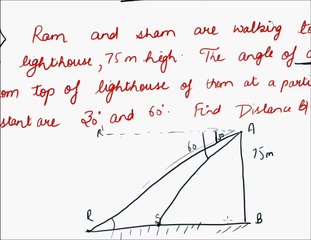 Ram and sham are walking to
lighthouse, 75m high. The angle of
top of lighthouse of them at a
are 30° and 60°. Find Distance
R' A
60
75m
R S B